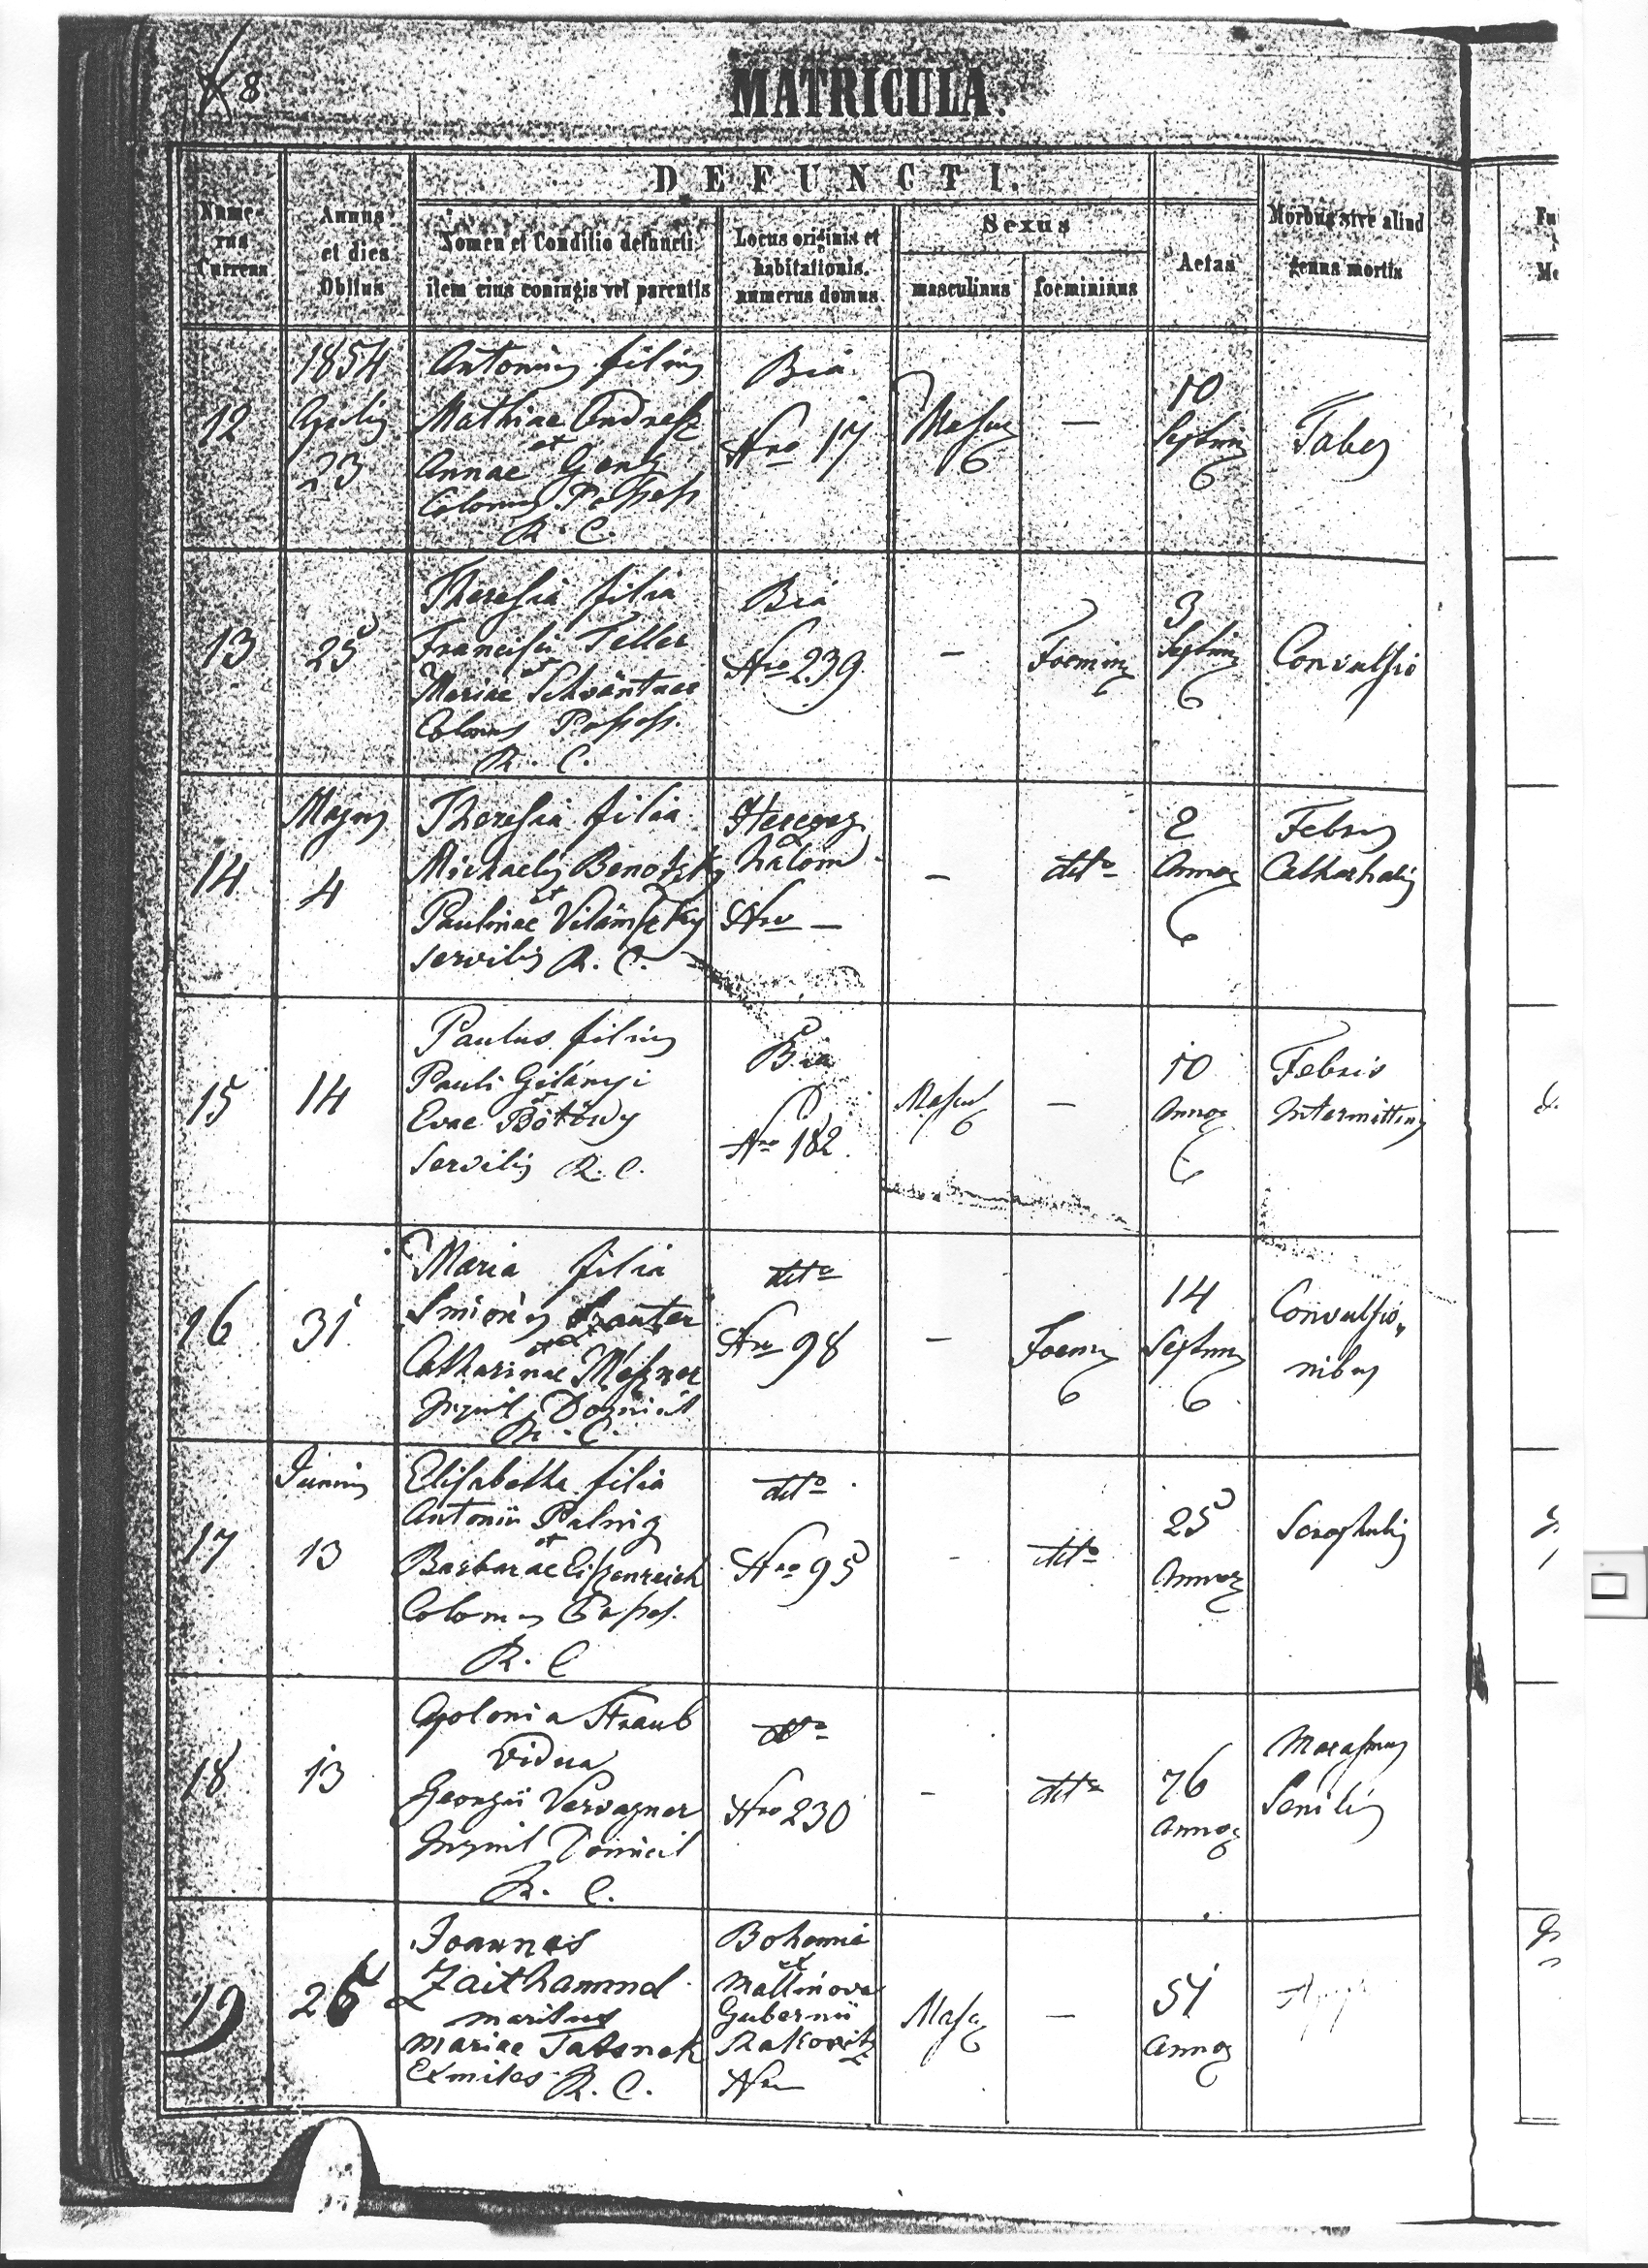 8
MATRICULA.
DEFUNCTI.
Nume-
rus
Currens
Annus
et dies
Obitus
Nomen et Conditio defuncti,
item eius coniugis vel parentis
Locus originis et
habitationis,
numerus domus.
Sexus
masculinus
foemininus
Aetas
Morbus sive aliud
genus mortis
12
1854
Aprilis
23
Antonius filius
Mathiae Endresz
et
Annae Genz
Colonus Possess
R. C.
Bia
Nro 17
Mascu
—
10
Septim
Tabes
13
25
Theresia filia
Francisci Teller
et
Mariae Schvántner
Colonus Possess.
R. C.
Bia
Nro 239
—
Foemin
3
Septim
Convulsio
14
Majus
4
Theresia filia
Michaelis
et
Paulinae
servilis R. C.
Herczeg
halom
Nro —
—
dtto
2
Annor
Febris
Catharhalis
15
14
Paulus filius
Pauli Gilányi
et
Evae
Servilis R. C.
Bia
Nro 182
Mascul
—
10
Annor
Febris
Intermittens
16
31
Maria filia
Simonis
et
Catharinae Meszner
Inquil Domicil
R. C.
dtto
Nro 98
—
Foemin
14
Septim
Convulsio„
nibus
17
Junius
13
Elisabetha filia
Antonii
et
Barbarae Eiszenreich
Colonus Possess.
R. C
dtto
Nro 95
-
dtto
25
Annor
Scrophulis
18
13
Apolonia Straub
vidua
Georgii Vervagner
Inquil Domicil
R. C.
dtto
Nro 230
-
dtto
76
Annor
Marasmus
Senilis
19
26
Joannes
Zaithammel
maritus
Mariae
Exmiles R. C.
Bohemia
ex
Mallinova
Gubernii
Rakovitz
Nro
Masc
—
51
Annor